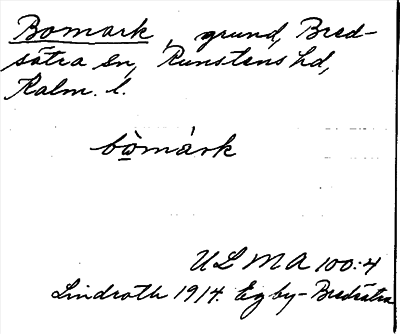 Bomark, grund, Bred-
sätra sn, Runstens hd,
Kalm. l.
bòmárk
ULMA 100:4
Lindroth 1914. Egby-Bredsätra